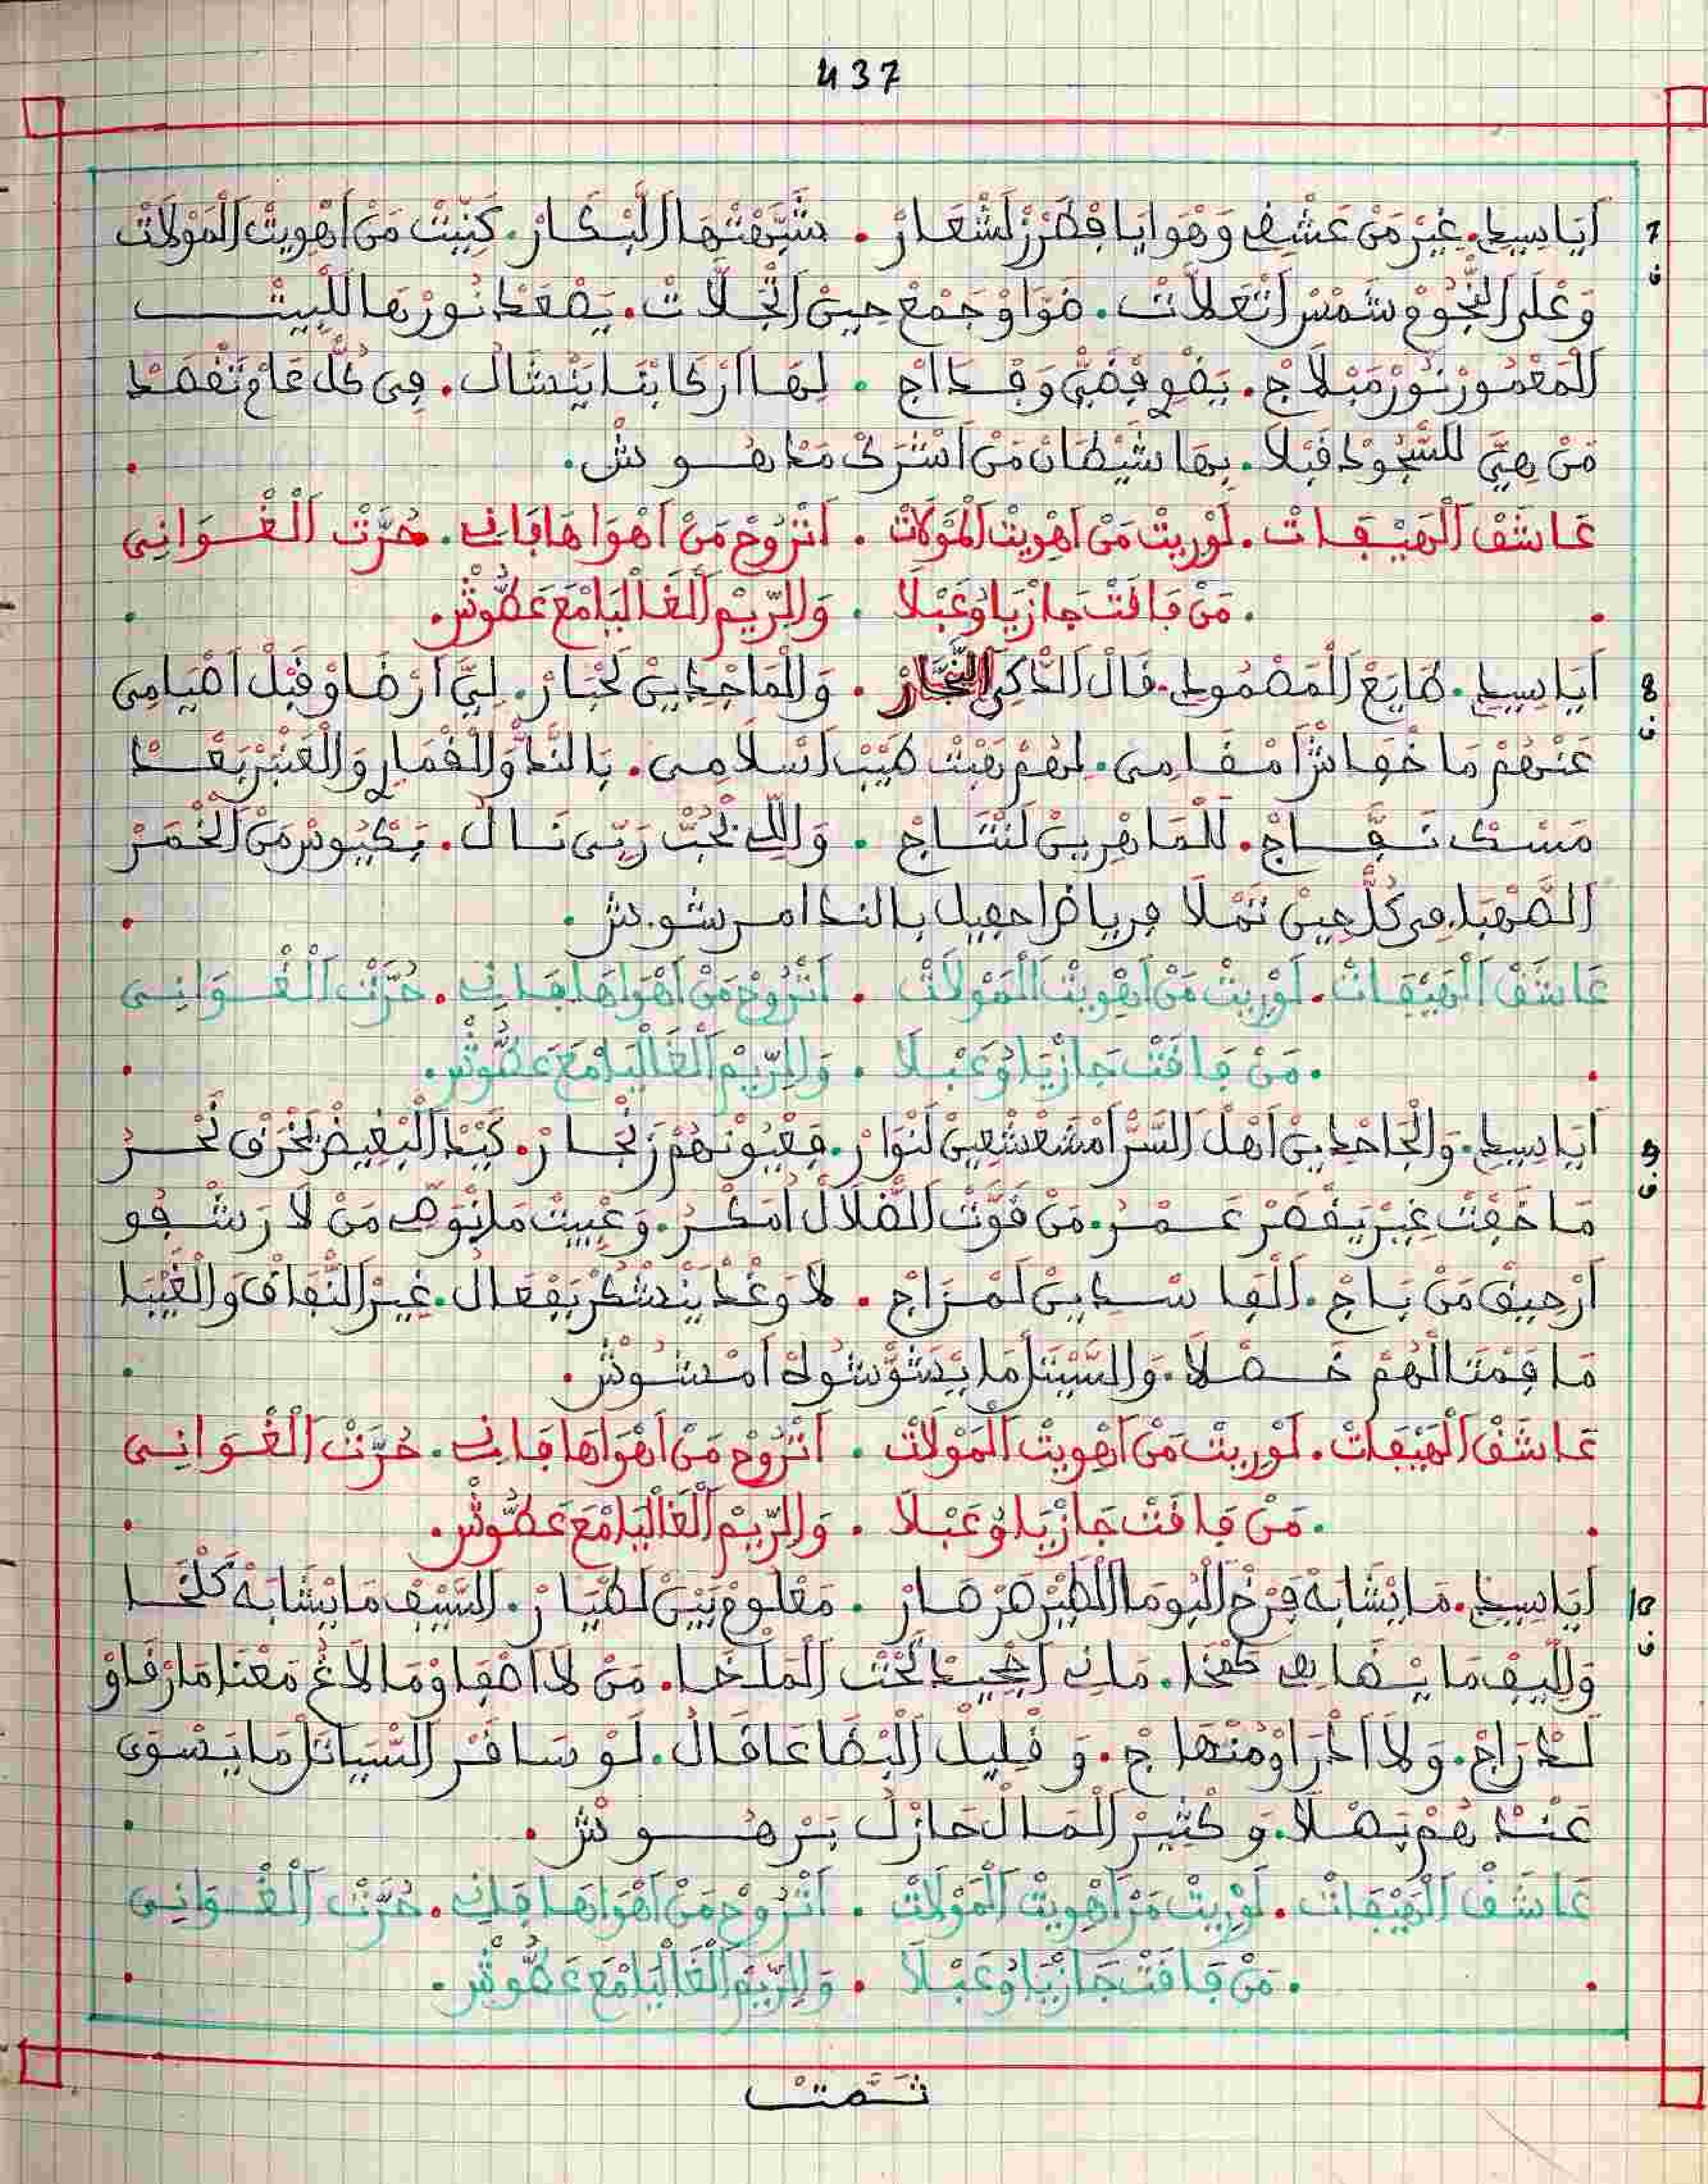 437
7 أَيَا سِيدِي. غِيرْ مَنْ عَشْقِي وَهْوَايَا فِطَرْزْ لَشْعَارْ . شَبَّهْتْهَا الَلْبْكَارْ. كَنِّيتْ مَنْ اَهْوِيتْ اَلْمَوْلَاتْ
ف وَعْلَى النّْجُومْ شَمْسْ اَتْعَلاَّتْ. ضَوَّاوْ جَمْعْ حِينْ اَتْجَلَّاتْ. يَصْعَدْ نُورْهَا لَلْبِيتْ
اَلْمَعْمُورْ نُورْ مَبْلَاجْ. يَضْوِي فْضَيّْ وَقْدَاجْ . لِهَا اَرْكَابْنَا يَنْشَالْ. فِي كُلّْ عَامْ تَنْقْصَدْ
مَنْ هِيَّ للسّْجُودْ قَبْلَا. بِهَا شَيْطَانْ مَنْ اَشْرَكْ مَدْهُوشْ.
عَاشَقْ اَلْهَيْفَاتْ. لَوْرِيتْ مَنْ اَهْوِيتْ اَلْمَوْلَاتْ . اَتْرُوحْ مَنْ اَهْوَاهَا فَانِي. حُرَّتْ اَلْغْوَانِي
. مَنْ فَاقَتْ جَازْيَا وُعَبْلَا . وَالرِّيمْ اَلْغَالْيَا مْعَ عَطُّوشْ.
8 أَيَا سِيدِي. طَابَعْ اَلْمَضْمُودِي. قَالْ اَلذَّكِي النَّجَّارْ . وَالْمَاجْدِينْ لَحْبَارْ. لِيَّ اَرْضَاوْ قَبْلْ اَصْيَامِي
ف عَنْهُمْ مَا خْفَاشْ اَمْقَامِي. لِهُمْ بَعْتْ طَيْبْ اَسْلَامِي. بَالنَّدّْ وَالْقْمَارِي وَالْعَنْبْرْ بَعْدْ
مَسْكْ نَفَّاجْ. لَلْمَاهْرِينْ لَنْتَاجْ . وَاللِّي بْحُبّْ رَبِّي نَالْ. بَكْيُوسْ مَنْ اَلْخْمَرْ
اَلصَّهْبَا فِي كُلّْ حِينْ تَمْلَا فرياض احفيل بالندا مرشوش.
عَاشَقْ اَلْهَيْفَاتْ. لَوْرِيتْ مَنْ اَهْوِيتْ اَلْمَوْلَاتْ . اَتْرُوحْ مَنْ اَهْوَاهَا فَانِي. حُرَّتْ اَلْغْوَانِي
. مَنْ فَاقَتْ جَازْيَا وُعَبْلَا . وَالرِّيمْ اَلْغَالْيَا مْعَ عَطُّوشْ.
9 أَيَا سِيدِي. وَالْجَاحْدِينْ اَهْلْ السَّرّْ اَمْشَعْشْعِينْ لَنْوَارْ. فَعْيُونْهُمْ زَنْجَارْ. كَبْدْ اَلْبْغِيضْ نَحْرَقْ نَحْرُ
ف مَا خَفْتْ غِيرْ يَقْصَرْ عَمْرُ. مَنْ قُوّْتْ الضّْلَالْ اُمَكْرُ. وَعْيِيتْ مَا نْوَصِّي مَنْ لَا رَشْفُو
اَرْحِيقْ مَنْ بَاجْ. اَلْفَاسْدِينْ لَمْزَاجْ . لَا وَغْدْ يَنْشْكَرْ بَفْعَالْ. غِيرْ النّْفَاقْ وَالْغِيبَا
مَا فْمْتَالْهُمْ خَصْلَا. وَالسَّيْتَلْ مَا يَسَوَّشْ سُولْدْ اَمْشُوشْ.
عَاشَقْ اَلْهَيْفَاتْ. لَوْرِيتْ مَنْ اَهْوِيتْ اَلْمَوْلَاتْ . اَتْرُوحْ مَنْ اَهْوَاهَا فَانِي. حُرَّتْ اَلْغْوَانِي
. مَنْ فَاقَتْ جَازْيَا وُعَبْلَا . وَالرِّيمْ اَلْغَالْيَا مْعَ عَطُّوشْ.
10 أَيَا سِيدِي. مَا يْشَابَهْ فَرْخْ اَلْبُومَا اَلطِّيرْ هَرْهَارْ . مَعْلُومْ بَيْنْ لَطْيَارْ. السَّيْفْ مَا يْشَابَهْ كَلْخَا
ف وَلْلِّيفْ مَا يْضَاهِي طَمْخَا. مَانِي اَجْبِيدْ تَحْتْ اَلْمَلْخَا. مَنْ لَا اَصْفَاوْ مَا لَاغْ مَعْنَا مَا رْقَاوْ
لَدْرَاجْ. وَلَا اَدْرَاوْ مَنْهَاجْ. وَ قْلِيلْ اَلْبْضَاعَا قَالْ. لَوْ سَافَرْ السَّيَاتَلْ مَا يَسْوَى
عَنْدْهُمْ بَصْلَا. وَ كْثِيرْ اَلْمَالْ حَازْلْ بَرْهُوشْ.
عَاشَقْ اَلْهَيْفَاتْ. لَوْرِيتْ مَنْ اَهْوِيتْ اَلْمَوْلَاتْ . اَتْرُوحْ مَنْ اَهْوَاهَا فَانِي. حُرَّتْ اَلْغْوَانِي
. مَنْ فَاقَتْ جَازْيَا وُعَبْلَا . وَالرِّيمْ اَلْغَالْيَا مْعَ عَطُّوشْ.
تَـمَّـتْ